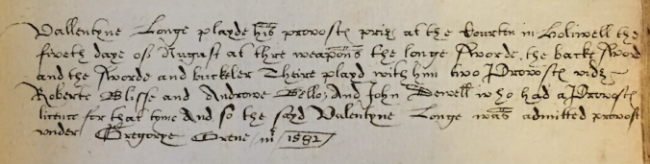 Vallentyne Longe playde his provosts prize at the Courten in Holiwell the
fiveth daye of August at thre weapons the longe sworde the backe sword
and the sworde and buckler Theire playd with him two Provosts vidz
Roberte Blisse and Androwe Bello, And John Dewell who had a Provosts
licence for that tyme And so the sayd Valentyne Longe was admitted provost
under Gregorye Grene in 1582